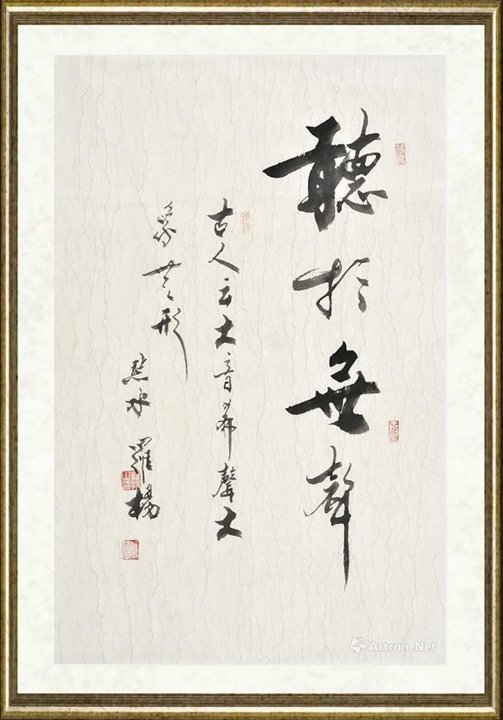 聽於無聲
古人云大音希聲大
象無形
羅楊
Artron.Net